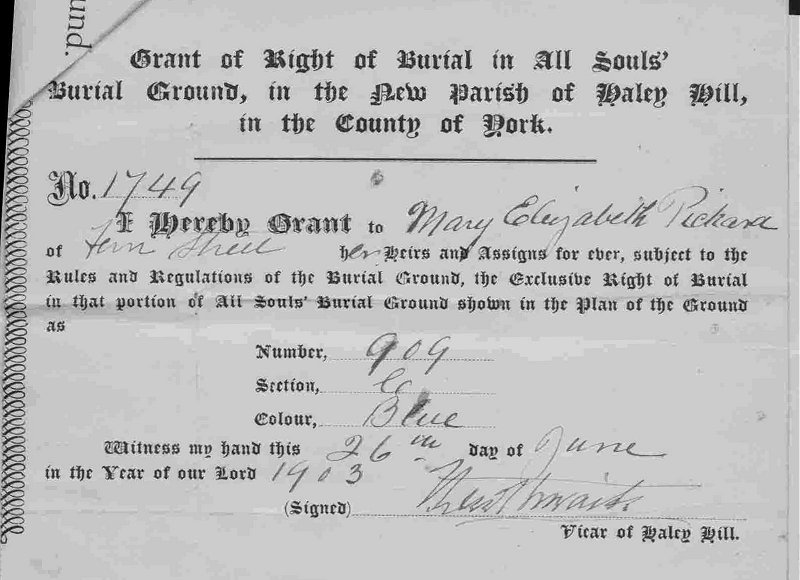 und.
Grant of Right of Burial in All Souls'
Burial Ground, in the New Parish of Haley Hill,
in the County of York.
No. 1749
I Hereby Grant to Mary Elizabeth Pickard
of Fern Street her Heirs and Assigns for ever, subject to the
Rules and Regulations of the Burial Ground, the Exclusive Right of Burial
in that portion of All Souls' Burial Ground shown in the Plan of the Ground
as
Number, 909
Section,
Colour, Blue
Witness my hand this 26th day of June
in the Year of our Lord 1903
(Signed)
Vicar of Haley Hill.